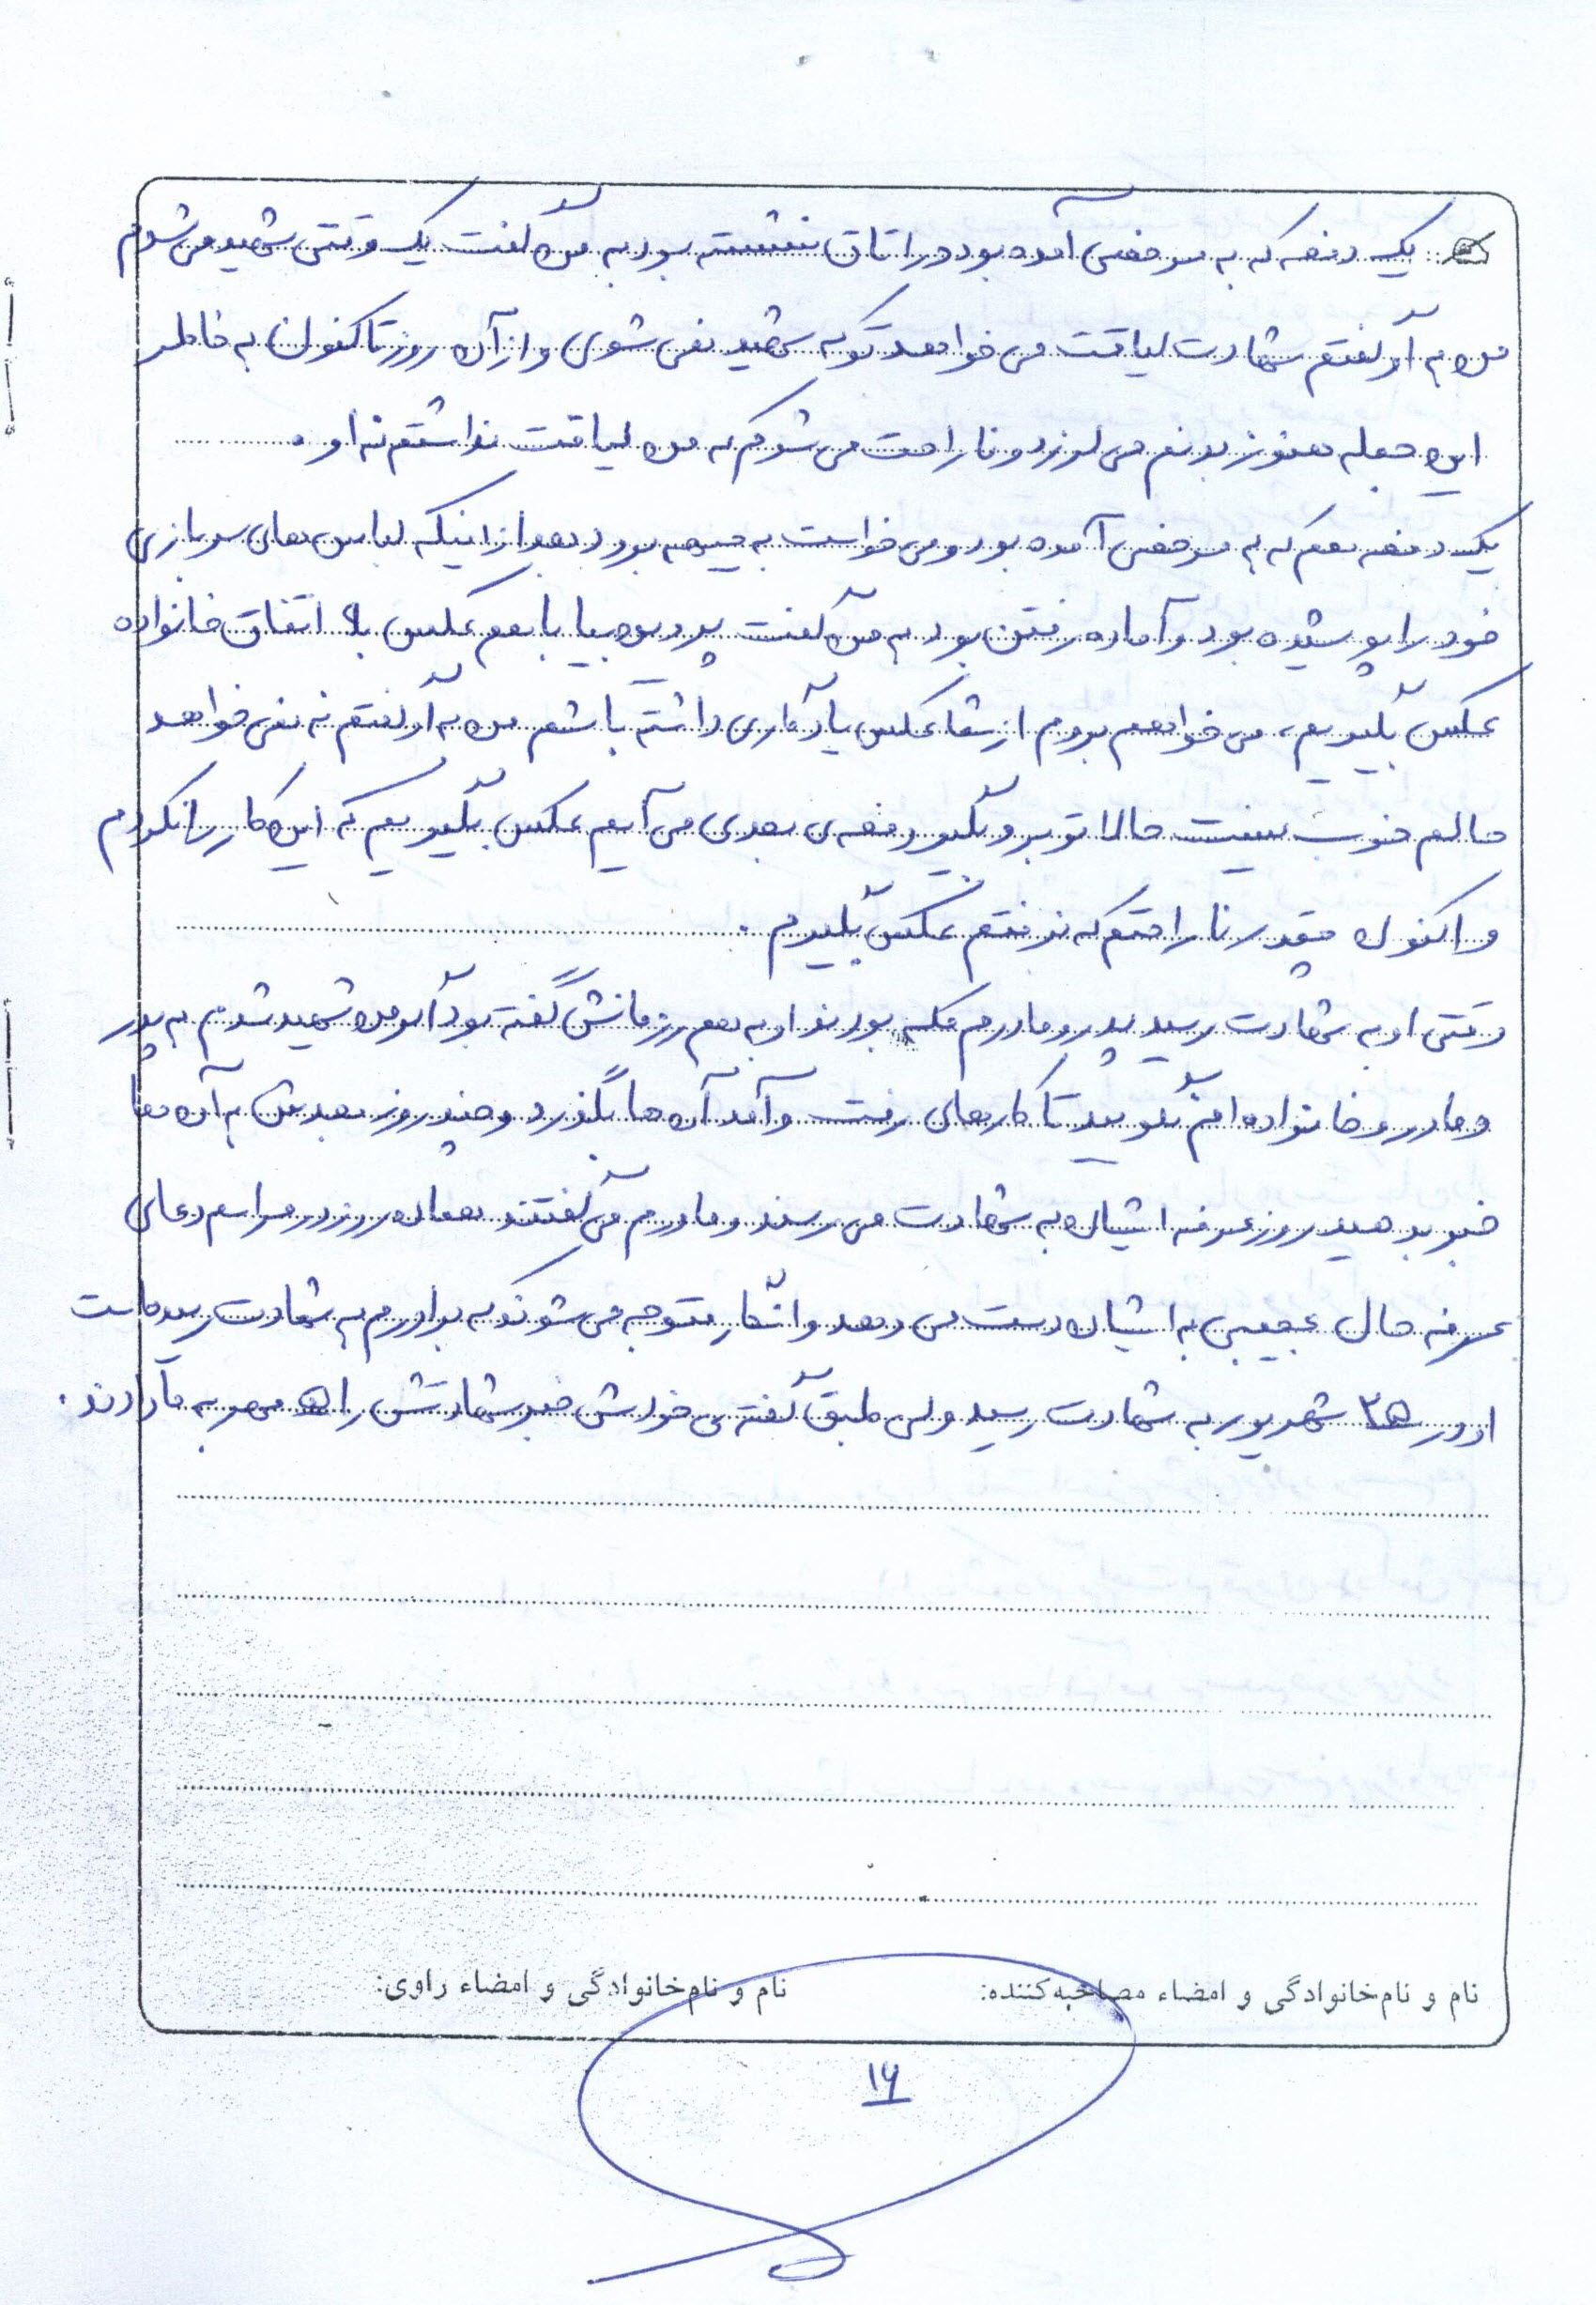 یک دفعه که به مرخصی آمده بود در اتاق نشسته بود به من گفت یک وقتی شهید می شوم
من به او گفتم شهادت لیاقت می خواهد تو که شهید نمی شوی و از آن روز تا کنون به خاطر
این جمله هنوز بدنم می لرزد و ناراحت می شوم که من لیاقت نداشتم نه او .
یک دفعه هم که به مرخصی آمده بود و می خواست به جبهه برود بعد از اینکه لباس های سربازی
خود را پوشیده بود و آماده رفتن بود به من گفت بیا با هم عکس با اتفاق خانواده
عکس بگیریم، می خواهم بروم از شما عکس یادگاری داشته باشم من به او گفتم نه نمی خواهد
حالم خوب نیست حالا تو برو بگیر دفعه ی بعدی می آیم عکس بگیریم که این کار را نکردم
و اکنون چقدر ناراحتم که نرفتم عکس بگیرم .
وقتی او به شهادت رسید پدر و مادرم مکه بودند او به هم رزمانش گفته بود اگر من شهید شدم به پدر
و مادر و خانواده ام نگویید تا کارهای رفت و آمد آن ها بگذرد و چند روز بعدش به آن ها
خبر بدهید روز عرفه ایشان به شهادت می رسند و مادرم می گفتند همان روز در مراسم دعای
عرفه حال عجیبی به ایشان دست می دهد و انگار متوجه می شوند که برادرم به شهادت رسیده است
او در ۲۵ شهریور به شهادت رسید ولی طبق گفته ی خودش خبر شهادتش را ۵ مهر به ما دادند.
نام و نام‌خانوادگی و امضاء مصاحبه‌کننده: نام و نام‌خانوادگی و امضاء راوی:
۱۶